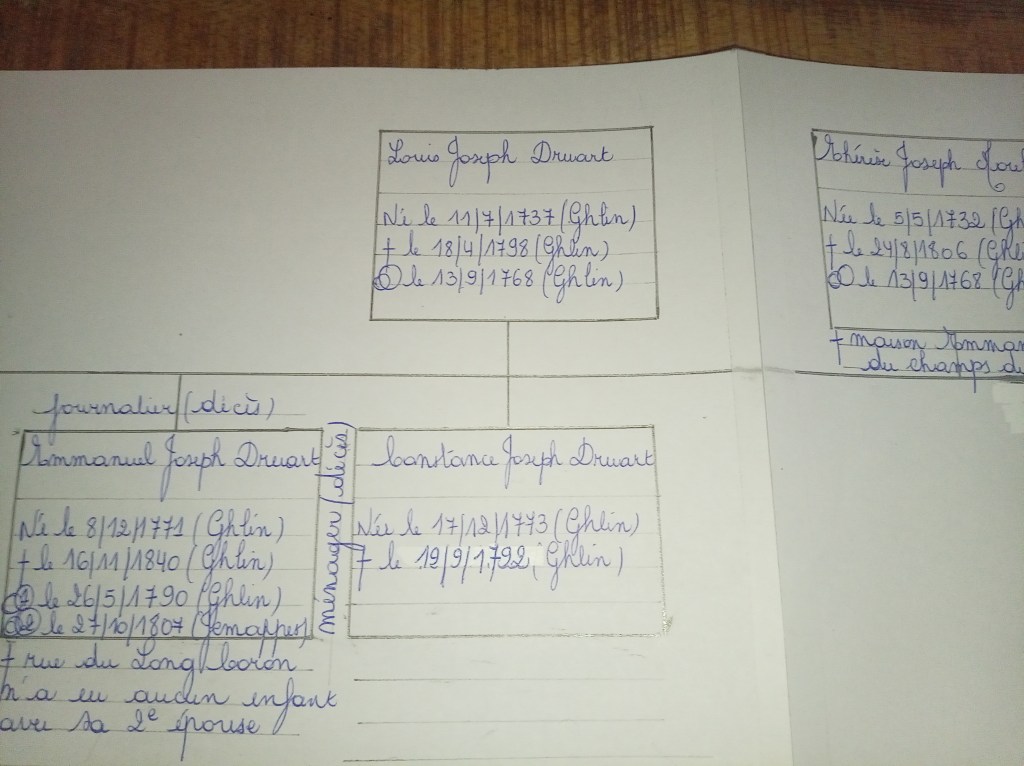 Louis Joseph Druart
Né le 11/7/1737 (Ghlin)
† le 18/4/1798 (Ghlin)
le 13/9/1768 (Ghlin)
Thérèse Joseph
Née le 5/5/1732 (Gh
† le 24/8/1806 (Ghli
le 13/9/1768 (Gh
† maison Emman
du champs du
Journalier (décès)
Emmanuel Joseph Druart
Né le 8/12/1771 (Ghlin)
† le 16/11/1840 (Ghlin)
1 le 26/5/1790 (Ghlin)
2 le 27/10/1807 (Jemappes)
† rue du Long Coron
n'a eu aucun enfant
avec sa 2e épouse
ménager (décès)
Constance Joseph Druart
Née le 17/12/1773 (Ghlin)
† le 19/9/1792 Ghlin)